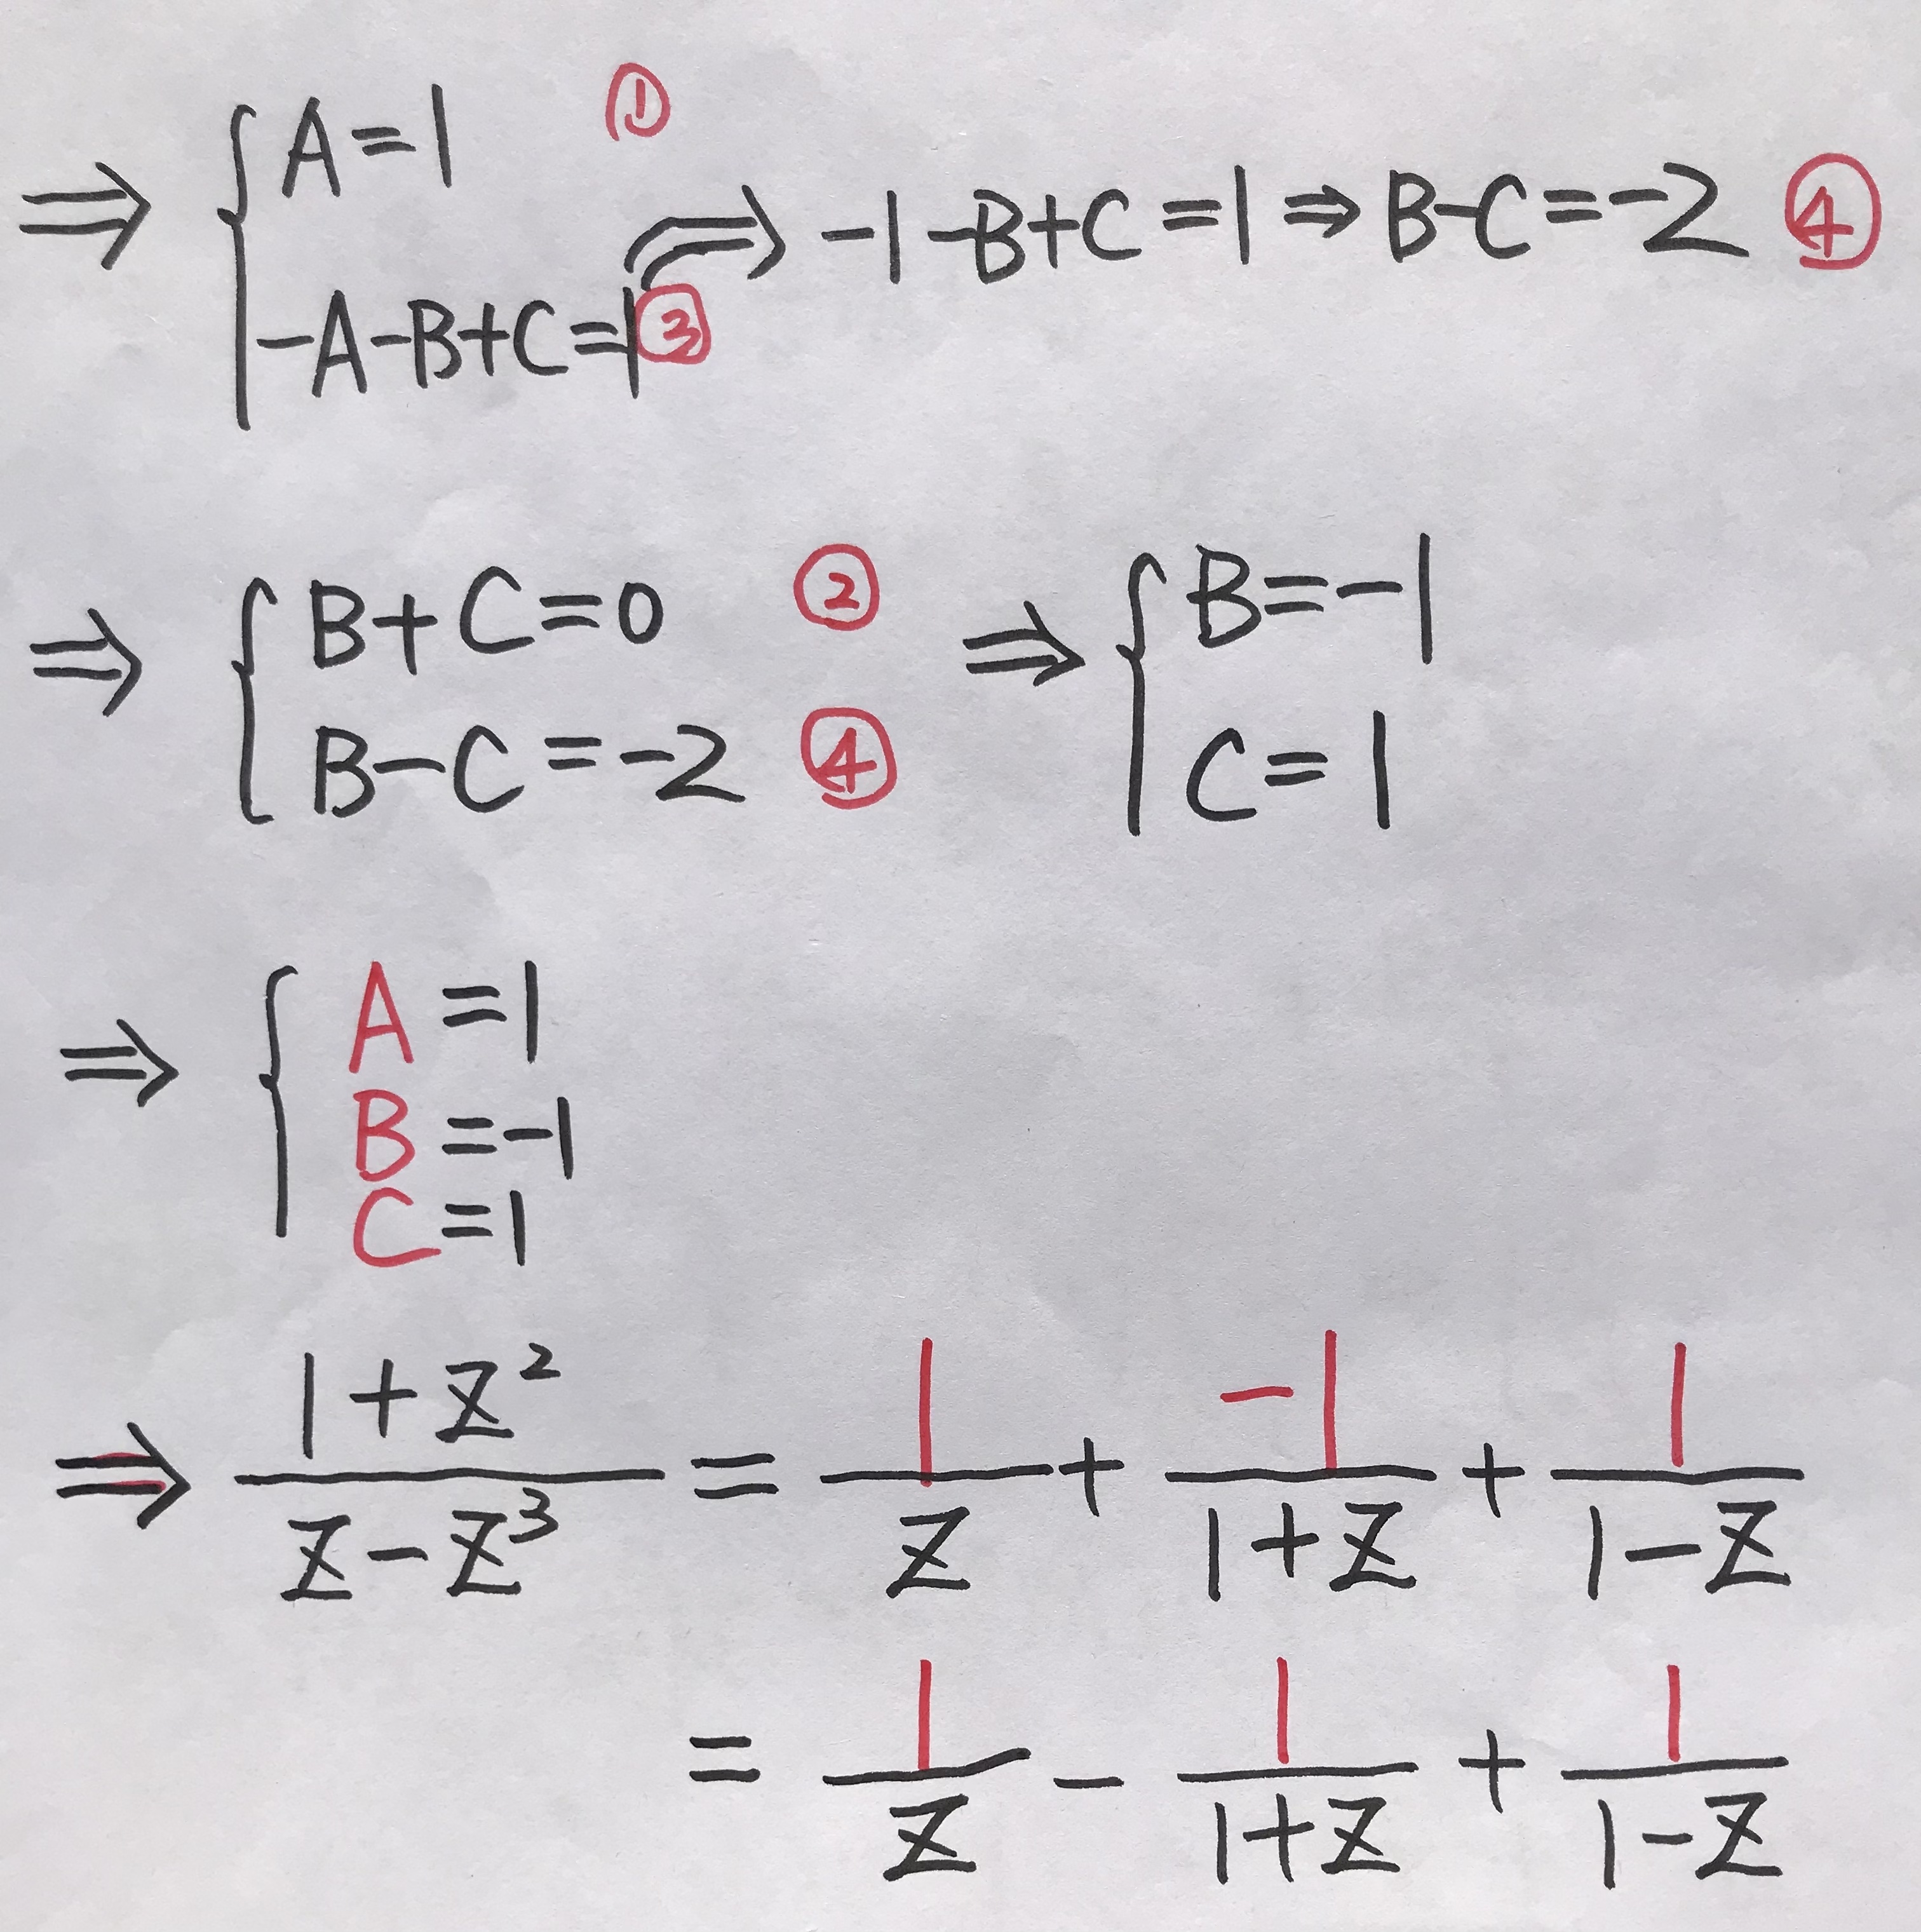 ⇒ { A=1 ①
-A-B+C=1 ③ ⇒ -1-B+C=1 ⇒ B-C=-2 ④
⇒ { B+C=0 ② ⇒ { B=-1
B-C=-2 ④ C=1
⇒ { A=1
B=-1
C=1
⇒ (1+Z²)/(Z-Z³) = 1/Z + -1/(1+Z) + 1/(1-Z)
= 1/Z - 1/(1+Z) + 1/(1-Z)